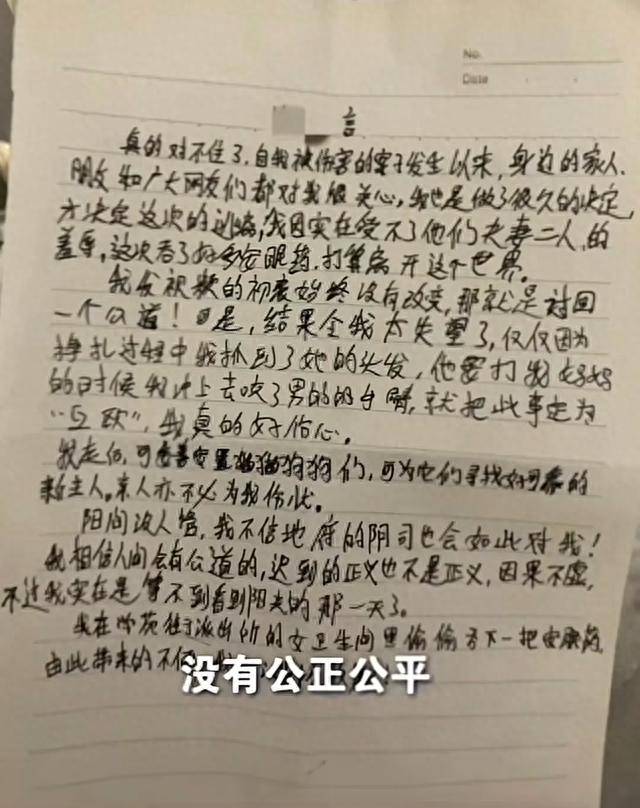 No.
Date
言
真的对不住了,自我被伤害的案子发生以来,身边的家人.
朋友和广大网友们都对我很关心,我也是做了很久的决定,
才决定这次的逃避,我因实在受不了他们夫妻二人的
羞辱,这次吞了好多安眠药,打算离开这个世界。
我发视频的初衷始终没有改变,那就是讨回
一个公道!但是,结果令我太失望了,仅仅因为
挣扎过程中我抓到了她的头发,他要打我妈妈
的时候我冲上去咬了男的的手臂,就把此事定为
“互殴”,我真的好伤心。
我走后,可 安置猫猫狗狗们,可为它们寻找好可靠的
新主人。亲人亦不必为我伤悲。
阳间没人管,我不信地府的阴司也会如此对我!
我相信人间会有公道的,迟到的正义也不是正义,因果不虚,
不过我实在是等不到看到阳光的那一天了。
我在 苑街派出所的女卫生间里偷偷吞下一把安眠药,
由此带来的不便
没有公正公平